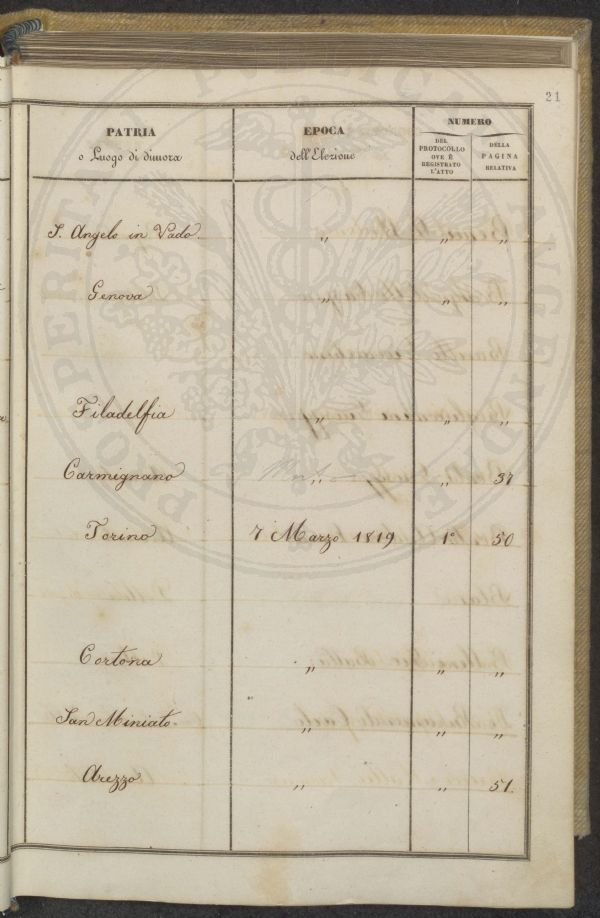 21
PATRIA
o Luogo di dimora
EPOCA
dell'Elezione
NUMERO
DEL
PROTOCOLLO
OVE È
REGISTRATO
L'ATTO
DELLA
PAGINA
RELATIVA
S. Angelo in Vado. " " "
Genova " " "
Filadelfia " " "
Carmignano " " 37
Torino 7 Marzo 1819 1º 50
Cortona " " "
San Miniato " " "
Arezzo " " 51